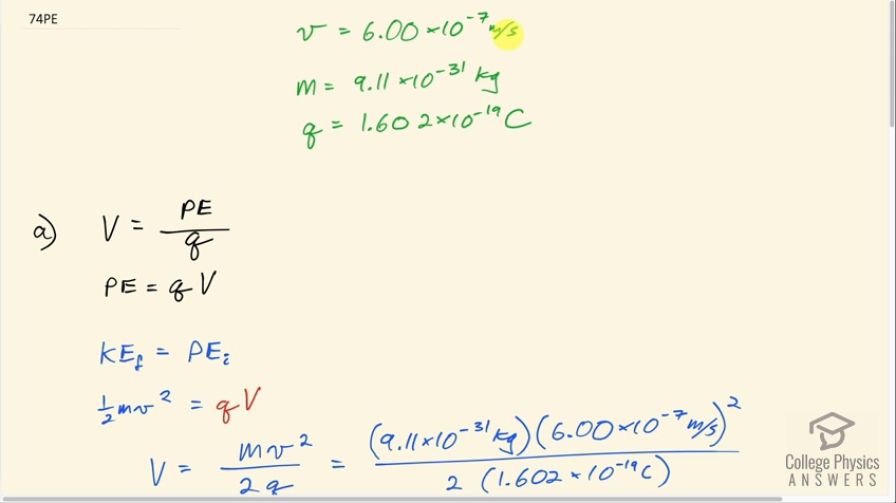 74PE
v = 6.00 × 10⁻⁷ m/s
m = 9.11 × 10⁻³¹ kg
q = 1.602 × 10⁻¹⁹ C
a) V = PE / q
PE = qV
KE_f = PE_i
½mv² = qV
V = mv² / 2q = (9.11 × 10⁻³¹ kg)(6.00 × 10⁻⁷ m/s)² / 2(1.602 × 10⁻¹⁹ C)
College Physics
ANSWERS